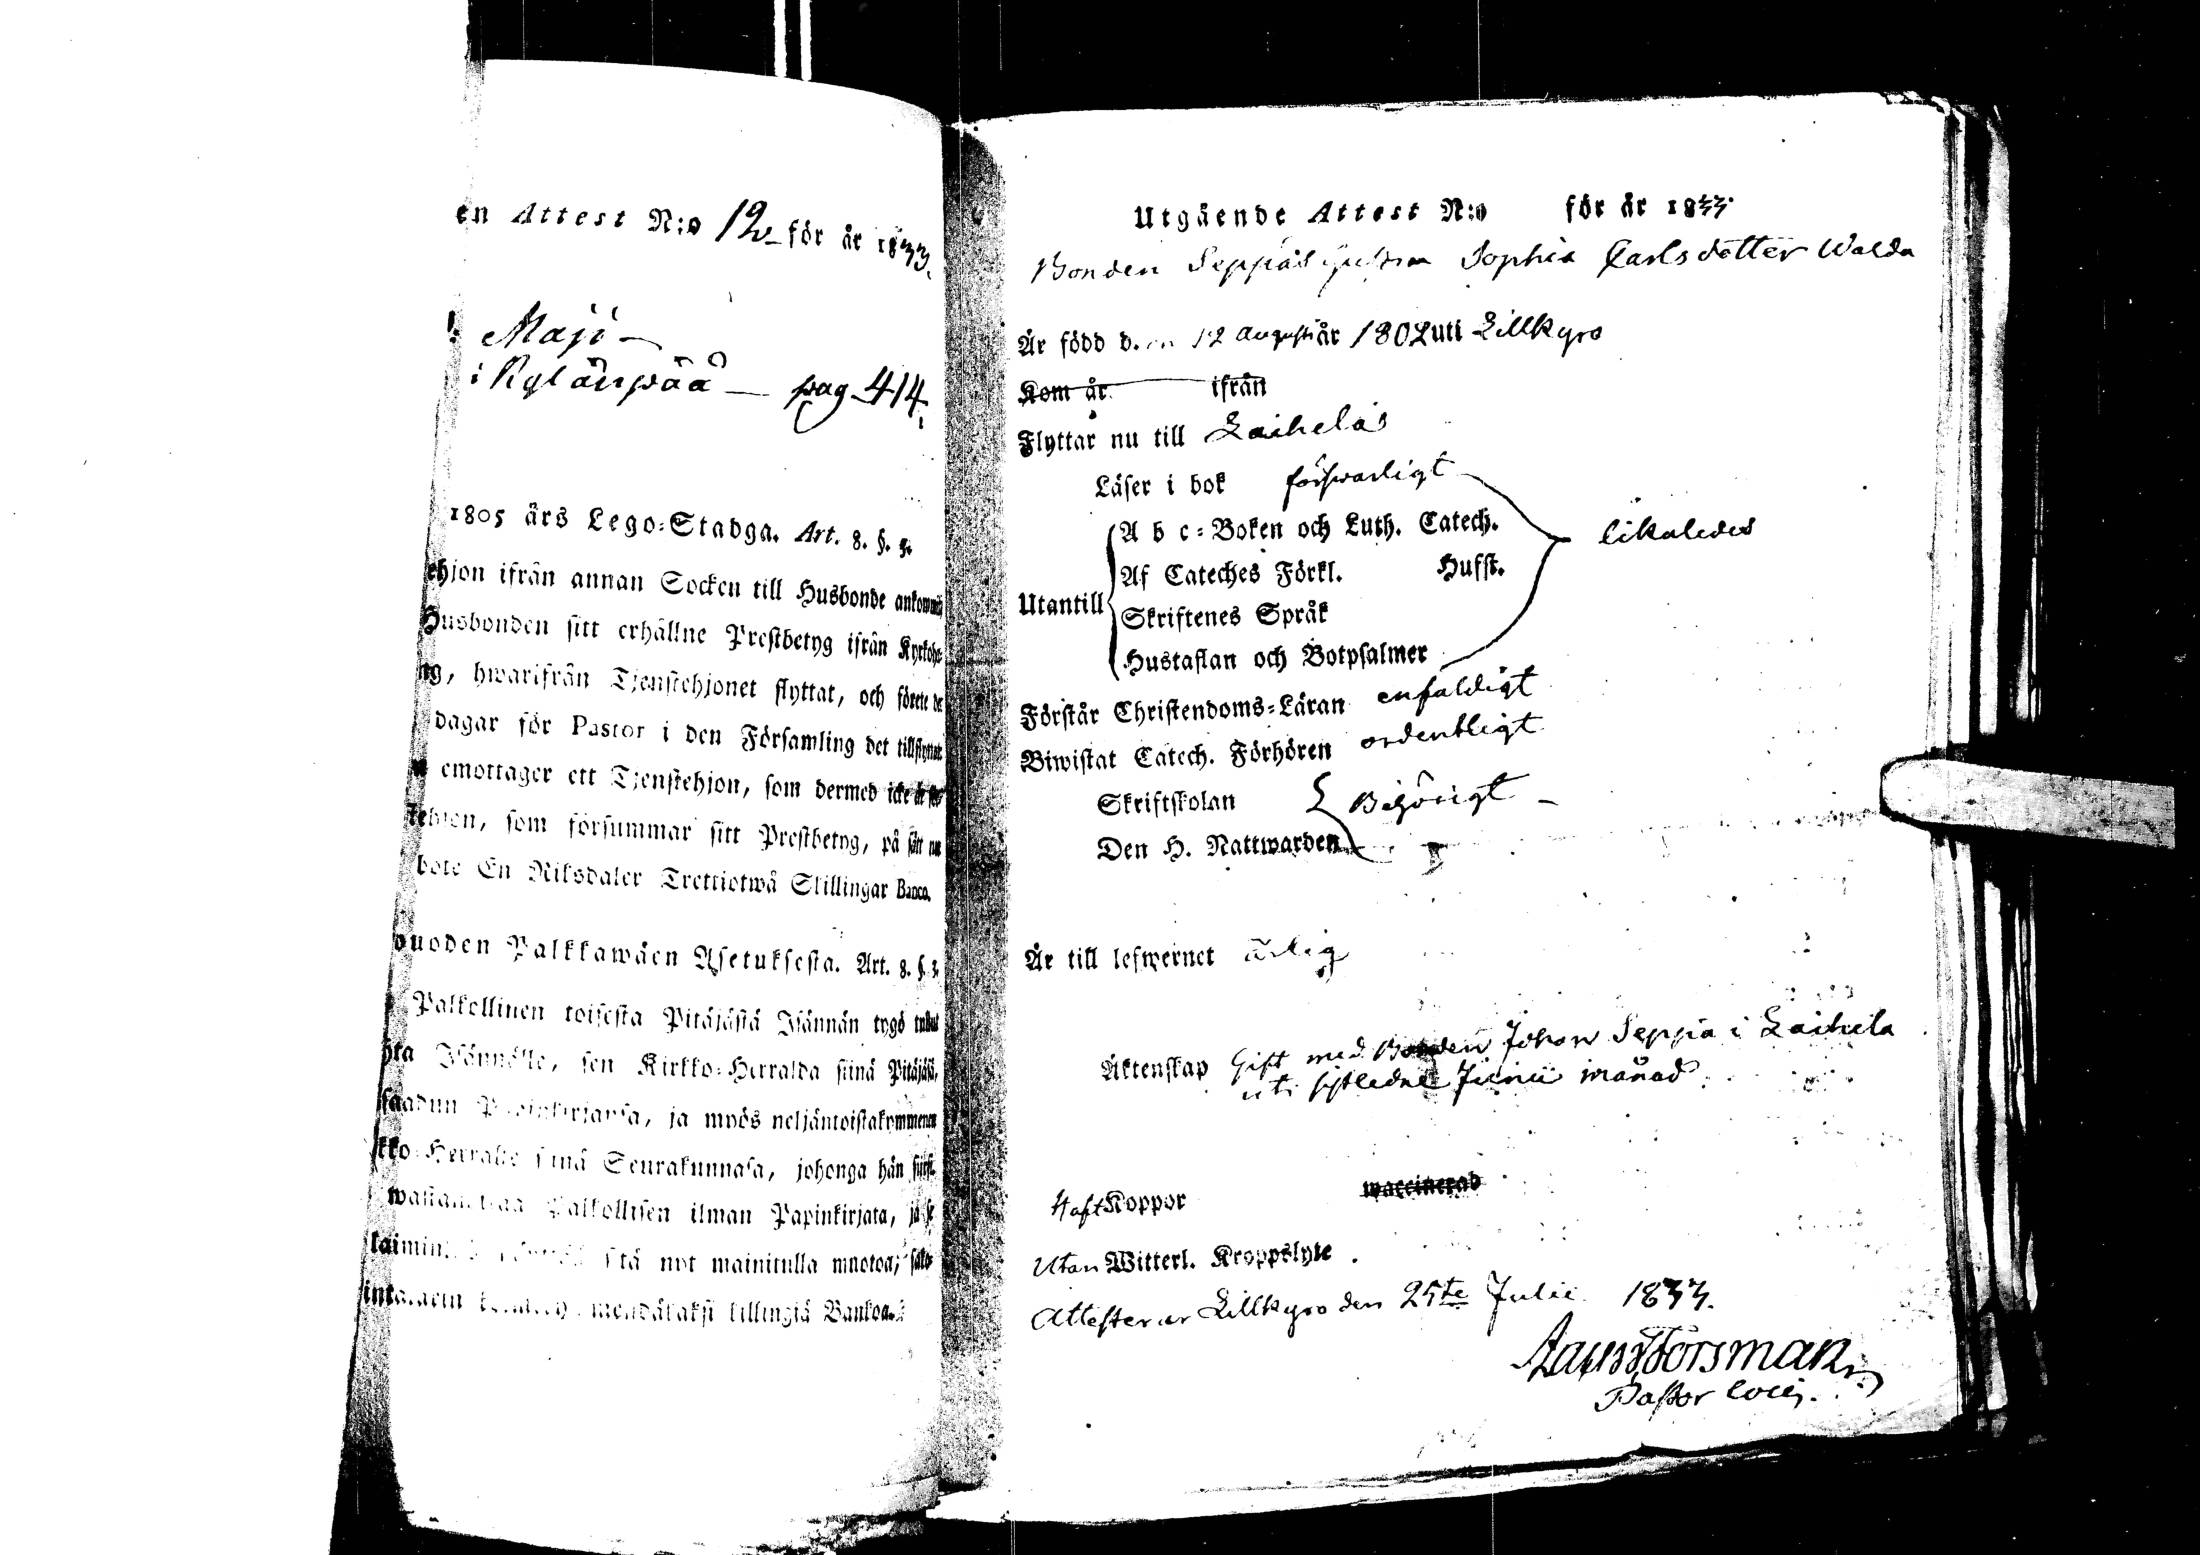 en Attest N:o 12 för år 1833.
Maji
i Kylänpää pag 414.
1805 års Lego-Stadga. Art. 8. §. 3.
ehjon ifrån annan Socken till Husbonde
Husbonden sitt erhållne Prestbetyg ifrån
ng, hwarifrån Tjenstehjonet flyttat, och förete
dagar för Pastor i den Församling det
emottager ett Tjenstehjon, som dermed icke är
stehjon, som försummar sitt Prestbetyg, på sätt
böte En Riksdaler Trettiotwå Skillingar Banco.
wuoden Palkkawäen Asetuksesta. Art. 8. §. 3.
Palkollinen toisesta Pitäjästä Isännän tygö
Isännälle, sen Kirkko-Herralda siinä Pitäjäsä,
saadun Papinkirjansa, ja myös neljäntoistakymmenen
kko-Herralle siinä Seurakunnasa, johonga hän
wastanottaa Palkollisen ilman Papinkirjata,
sitä nyt mainitulla muotoa,
killingiä Bankoa.
Utgående Attest N:o för år 1833.
Bonden Seppäs hustru Sophia Carlsdotter Walda
Är född d. en 12 Augusti år 1802 uti Lillkyro
Kom år ifrån
Flyttar nu till Laihela
Läser i bok förswarligt
A b c-Boken och Luth. Catech. likaledes
Af Cateches Förkl. Husst.
Utantill
Skriftenes Språk
Hustaflan och Botpsalmer
Förstår Christendoms-Läran enfaldigt
Biwistat Catech. Förhören ordentligt
Skriftskolan Behörigt
Den H. Nattwarden
Är till lefwernet ärlig
Äktenskap Gift med Bonden Johan Seppä i Laihela
uti sistledne Junii månad.
Haft Koppor waccinerad
Utan Witterl. Kroppslyte.
Attesterar Lillkyro den 25te Julii 1833.
Forsman
Pastor loci.